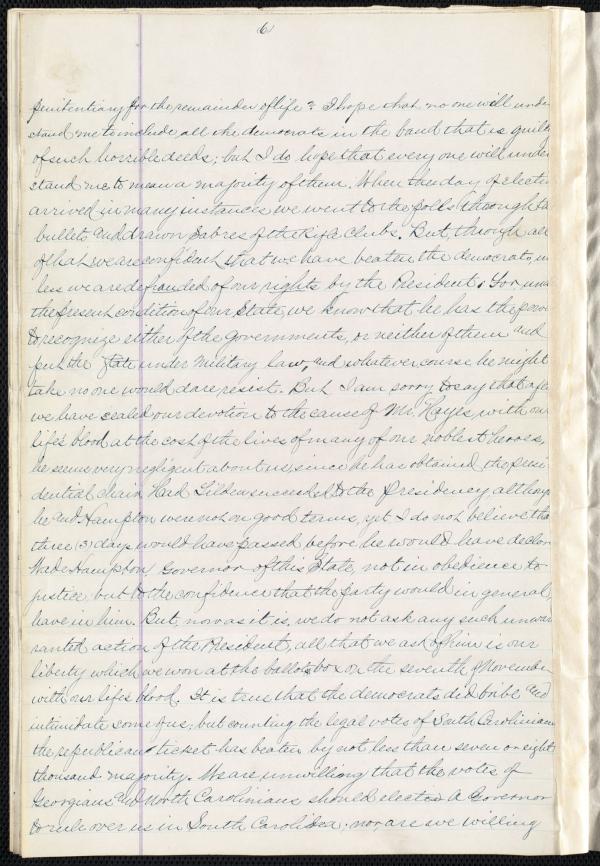 6
penitentiary for the remainder of life? I hope that no one will under
stand me to include all the democrats in the band that is guilt
of such horrible deeds; but I do hope that every one will under
stand me to mean a majority of them. When the day of electi
arrived in many instances we went to the polls through the
bullets and drawn sabres of the Rifle Clubs. But, through all
of that we are confident that we have beaten the democrats, un
less we are defrauded of our rights by the President. For, und
the present condition of our State, we know that he has the powe
to recognize either of the governments, or neither of them and
put the State under Military law, and whatever course he might
take no one would dare resist. But I am sorry to say that after
we have sealed our devotion to the cause of Mr. Hayes, with our
life's blood at the cost of the lives of many of our noblest heroes,
he seems very negligent about us, since he has obtained the presi
dential chair. Had Tilden succeeded to the Presidency althoug
he and Hampton were not on good terms, yet I do not believe tha
three (3) days would have passed before he would have declar
Wade Hampton Governor of this State, not in obedience to
justice, but to the confidence that the party would in general
have in him. But, now as it is, we do not ask any such unwar
ranted action of the President, all that we ask of him is our
liberty which we won at the ballot box on the seventh of November
with our life's blood. It is true that the democrats did bribe and
intimidate some of us; but counting the legal votes of South Carolinians
the republican ticket has beaten by not less than seven or eight
thousand majority. We are unwilling that the votes of
Georgians and North Carolinians should elected A Governor
to rule over us in South Carolina; nor, are we willing